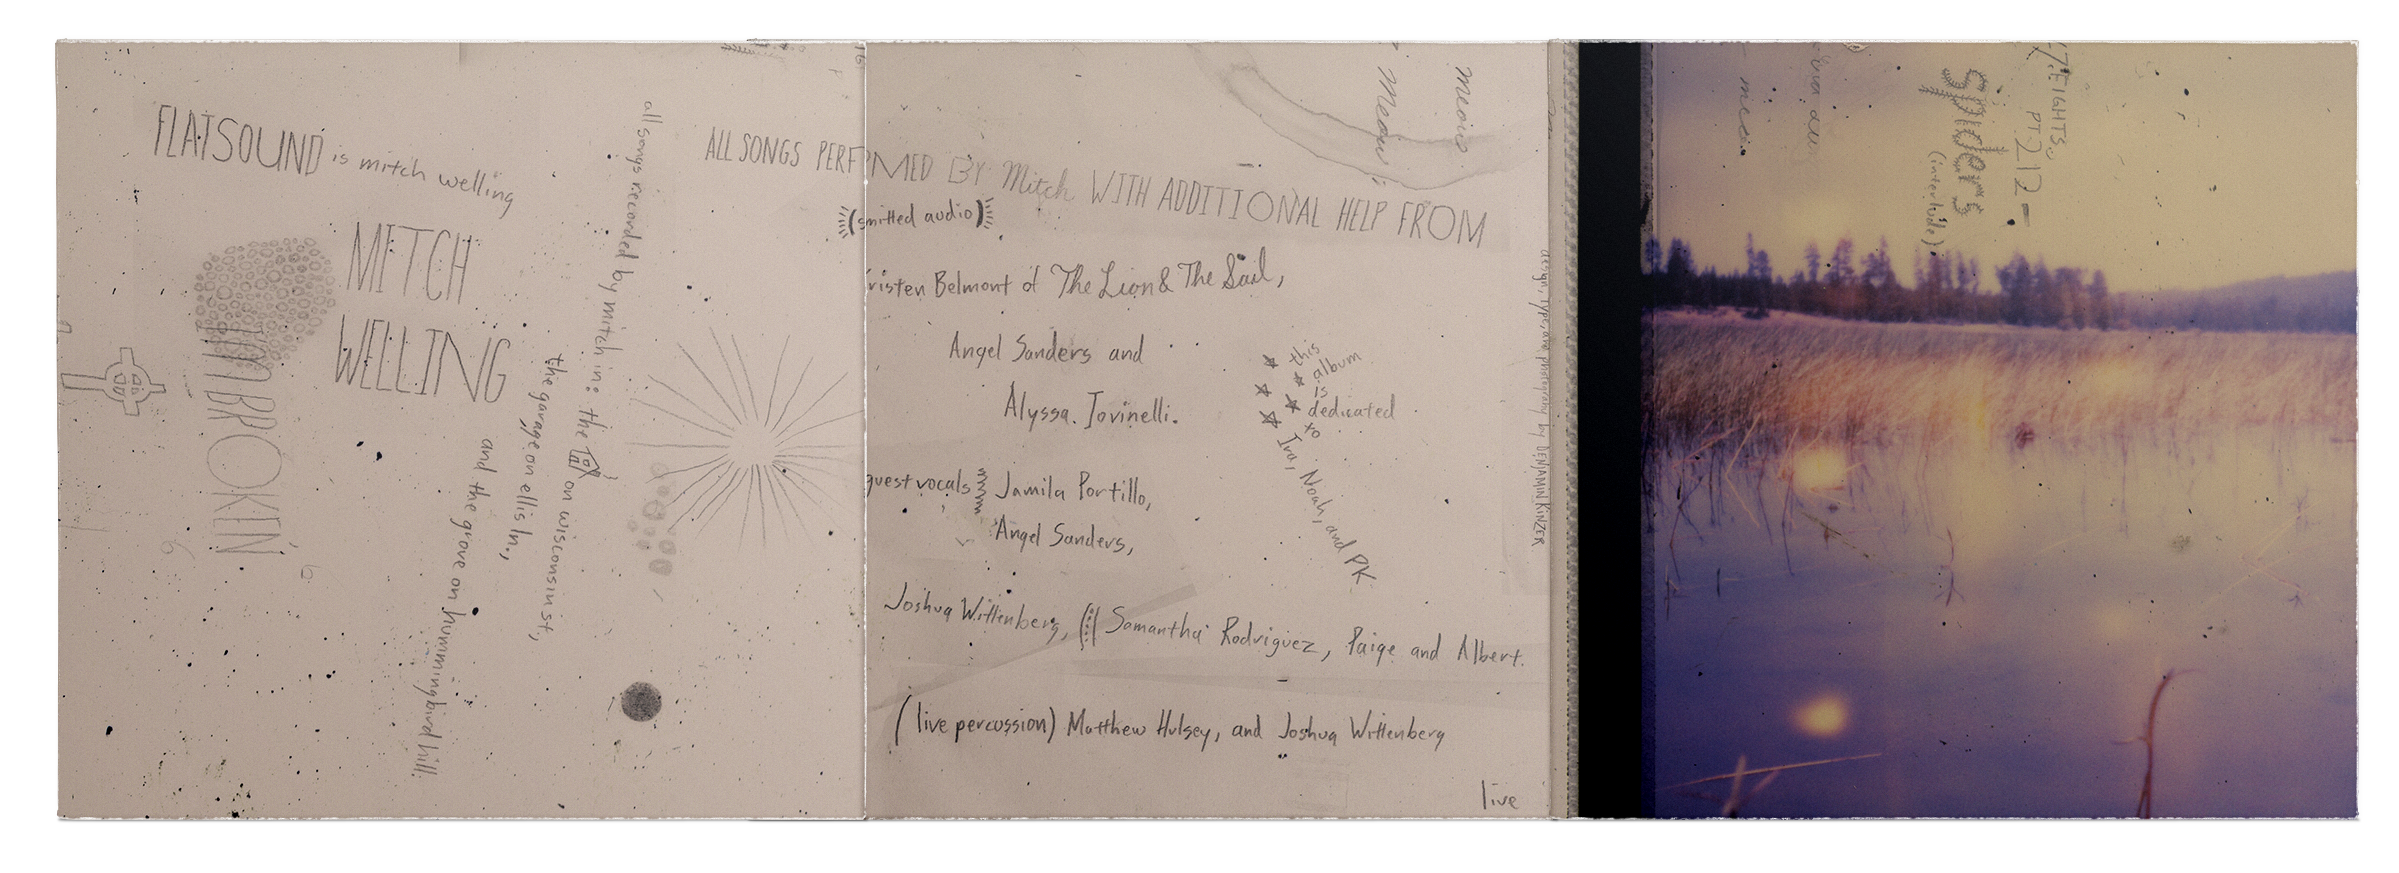 FLATSOUND is mitch welling
MITCH
WELLING
all songs recorded by mitch in: the
on wisconsin st,
the garage on ellis ln.,
and the grove on hummingbird hill.
ALL SONGS PERF MED BY Mitch WITH ADDITIONAL HELP FROM
(smitted audio)
risten Belmont of The Lion & The Sail,
Angel Sanders and
Alyssa Iovinelli.
guest vocals
Jamila Portillo,
Angel Sanders,
Joshua Wittenberg, Samantha Rodriguez, Paige and Albert.
(live percussion) Matthew Hulsey, and Joshua Wittenberg
live
this
album
is
dedicated
to
Iva, Noah, and PK
meow
meow
design, type, and photography by BENJAMIN KINZER
EIGHTS,
PT 212 -
spiders
(interlude)